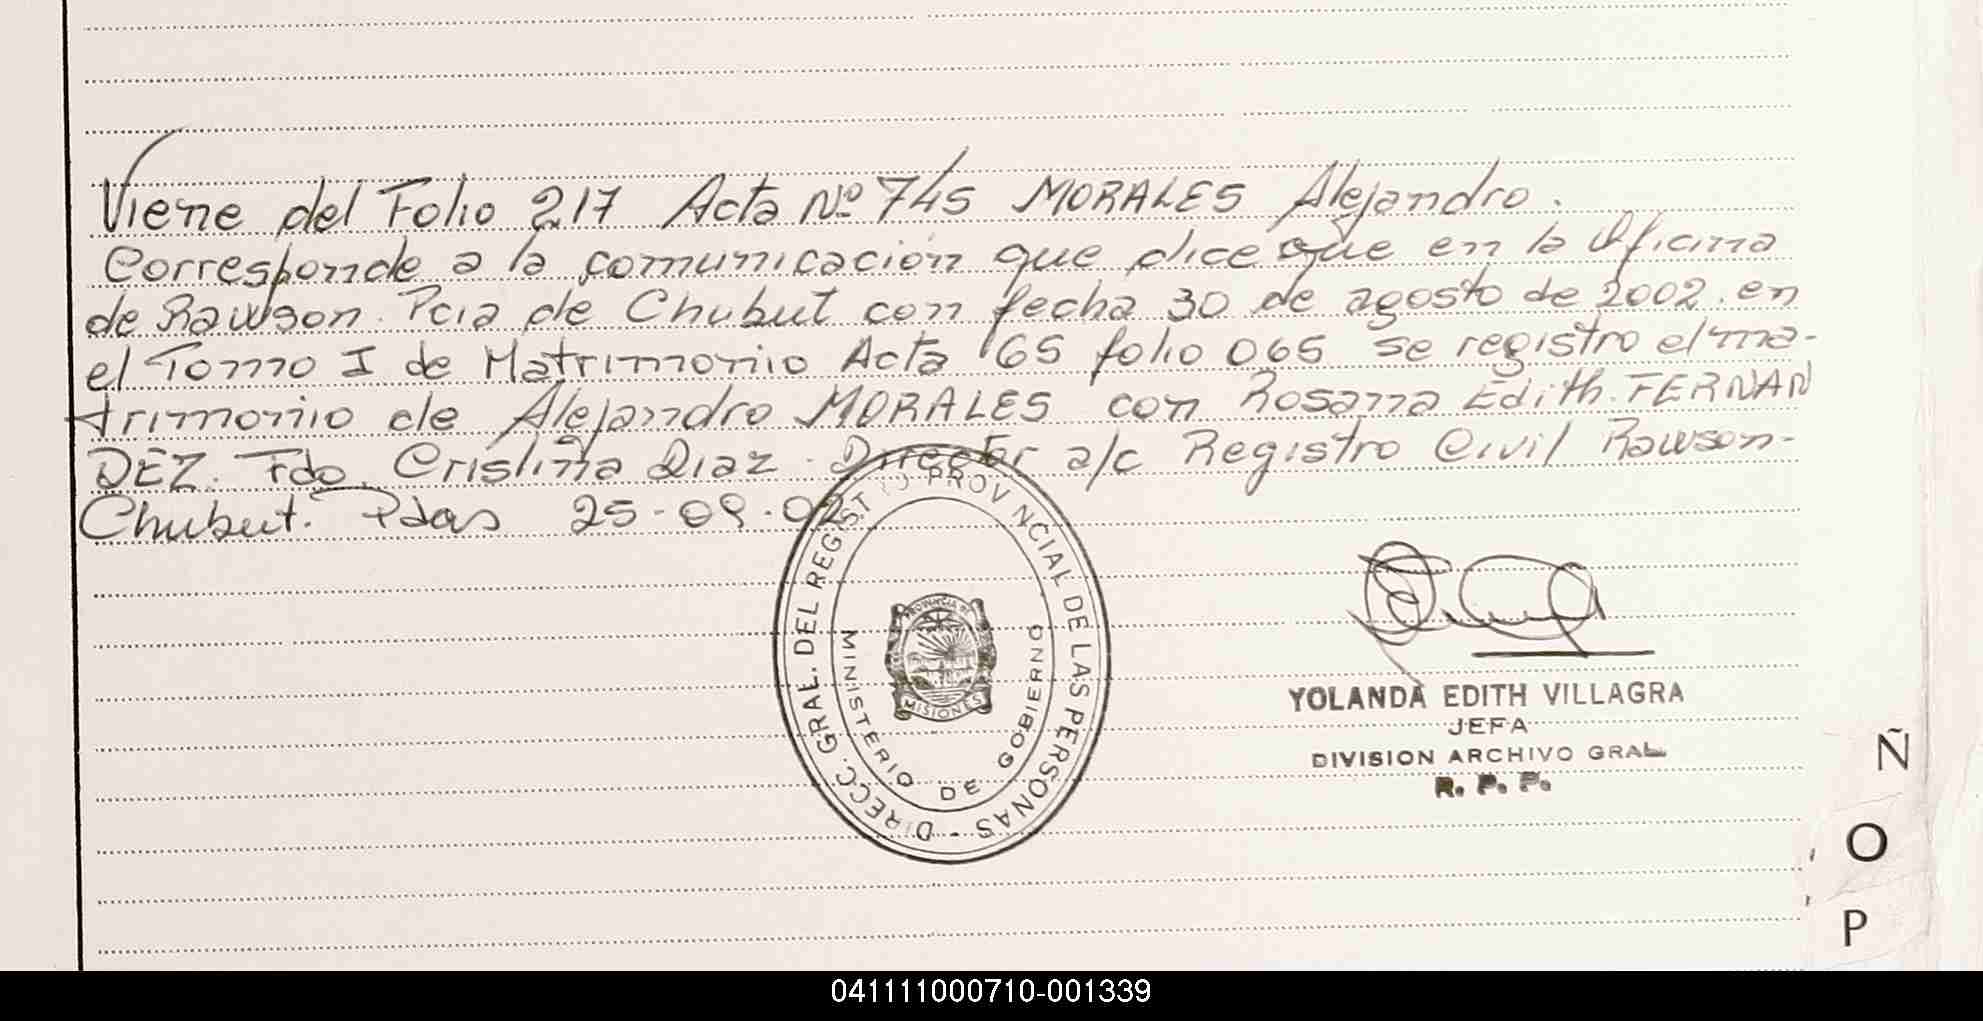 Viene del Folio 217 Acta Nº 745 MORALES Alejandro.
Corresponde a la comunicación que dice que en la Oficina
de Rawson. Pcia de Chubut con fecha 30 de agosto de 2002. en
el Tomo I de Matrimonio Acta 65 folio 065 se registro el ma-
trimonio de Alejandro MORALES con Rosana Edith. FERNAN
DEZ. Fdo. Cristina Diaz. Director a/c Registro Civil Rawson-
Chubut. Pdas 25-09-02
DIRECC. GRAL. DEL REGISTRO PROVINCIAL DE LAS PERSONAS -
MINISTERIO DE GOBIERNO
PROVINCIA DE
MISIONES
YOLANDA EDITH VILLAGRA
JEFA
DIVISION ARCHIVO GRAL
R. P. P.
Ñ
O
P
041111000710-001339